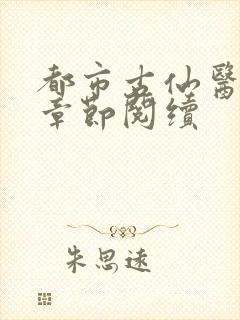 都市古仙醫
章節閱續
朱思遠